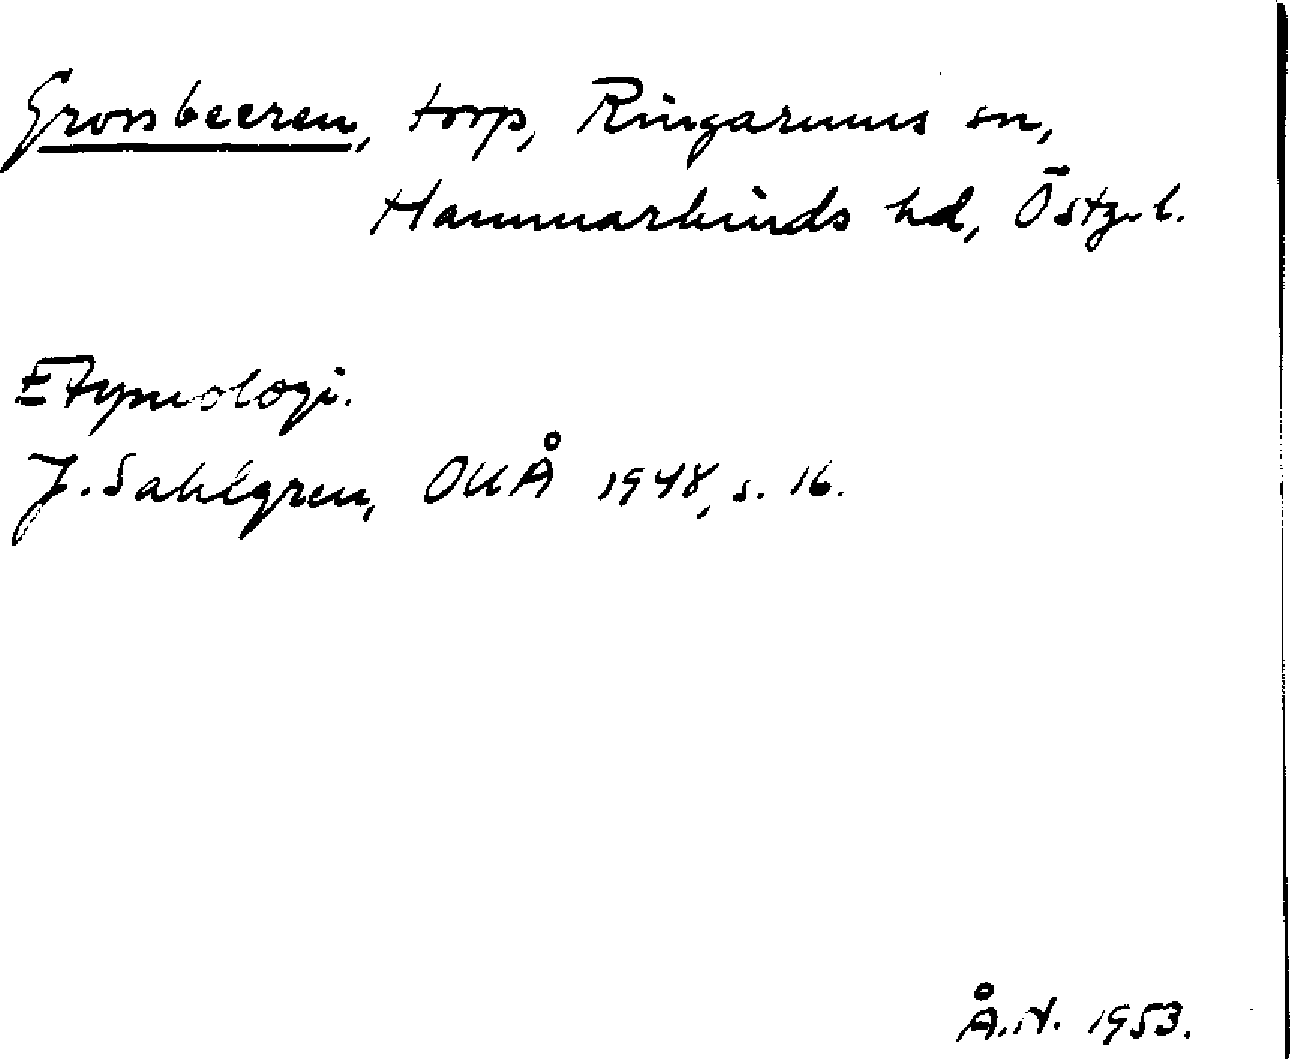 Grossbeeren, torp, Ringarums sn,
Hammarkinds hd, Östg. l.
Etymologi.
J. Sahlgren, OUÅ 1948, s. 16.
Å. N. 1953.